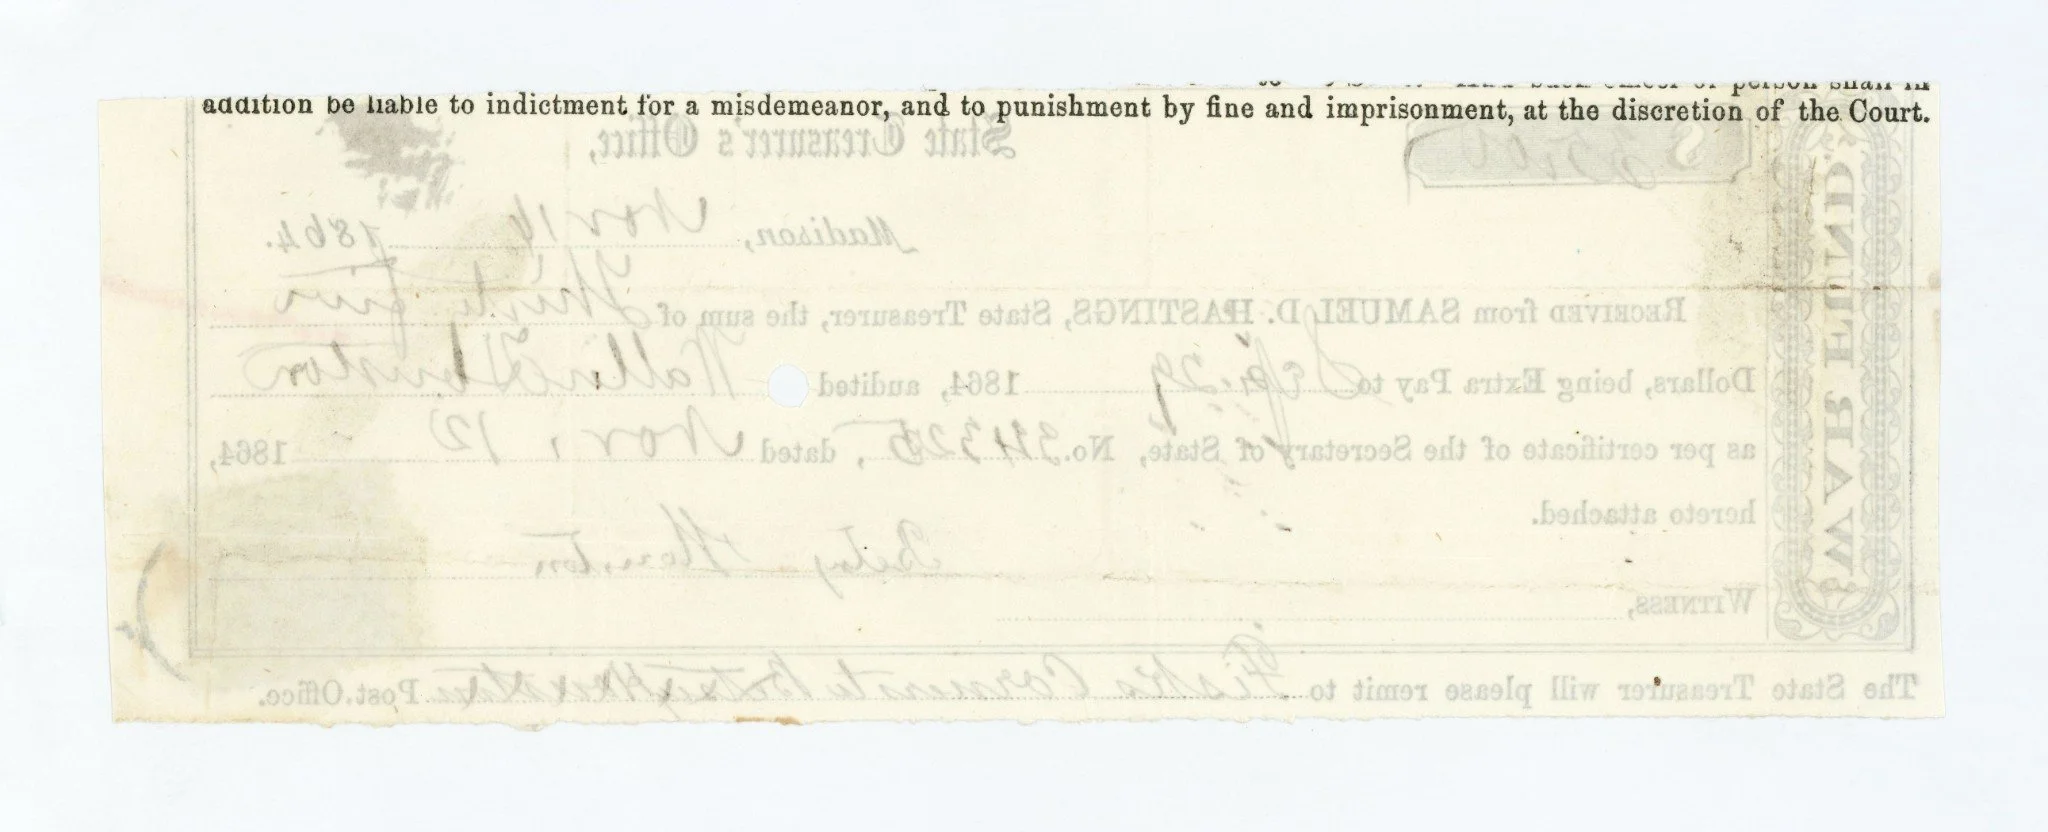 to
person shall in
addition be liable to indictment for a misdemeanor, and to punishment by fine and imprisonment, at the discretion of the Court.
$ 35.00
State Treasurer's Office,
Madison, Nov 16 1864.
RECEIVED from SAMUEL D. HASTINGS, State Treasurer, the sum of Thirty five
Dollars, being Extra Pay to Sept. 29 1864, audited
as per certificate of the Secretary of State, No. 34325, dated Nov. 12 1864,
hereto attached.
Betsy Thurston
WITNESS,
The State Treasurer will please remit to Fisk's Corners Post Office.
WAR FUND